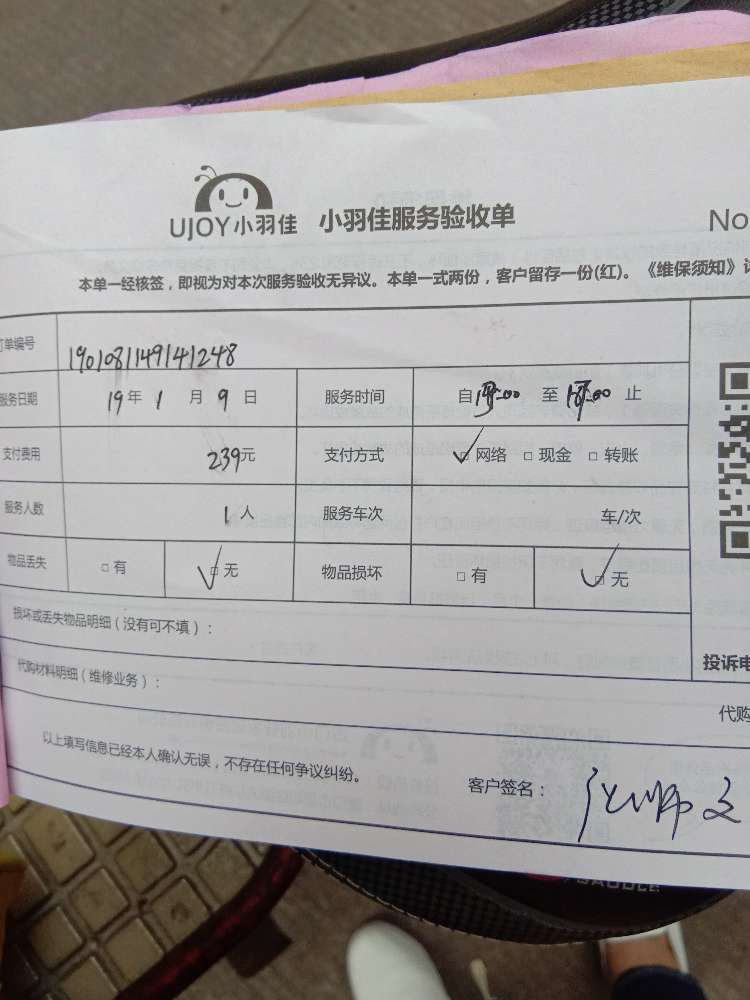 UJOY小羽佳 小羽佳服务验收单 No
本单一经核签，即视为对本次服务验收无异议。本单一式两份，客户留存一份(红)。《维保须知》
订单编号 1901081149141248
服务日期 19年 1 月 9 日 服务时间 自 :00 至 :00 止
支付费用 239元 支付方式 □网络 □现金 □转账
服务人数 1人 服务车次 车/次
物品丢失 □有 □无 物品损坏 □有 □无
损坏或丢失物品明细（没有可不填）：
投诉电
代购材料明细（维修业务）：
代购
以上填写信息已经本人确认无误，不存在任何争议纠纷。
客户签名：
SADDLE